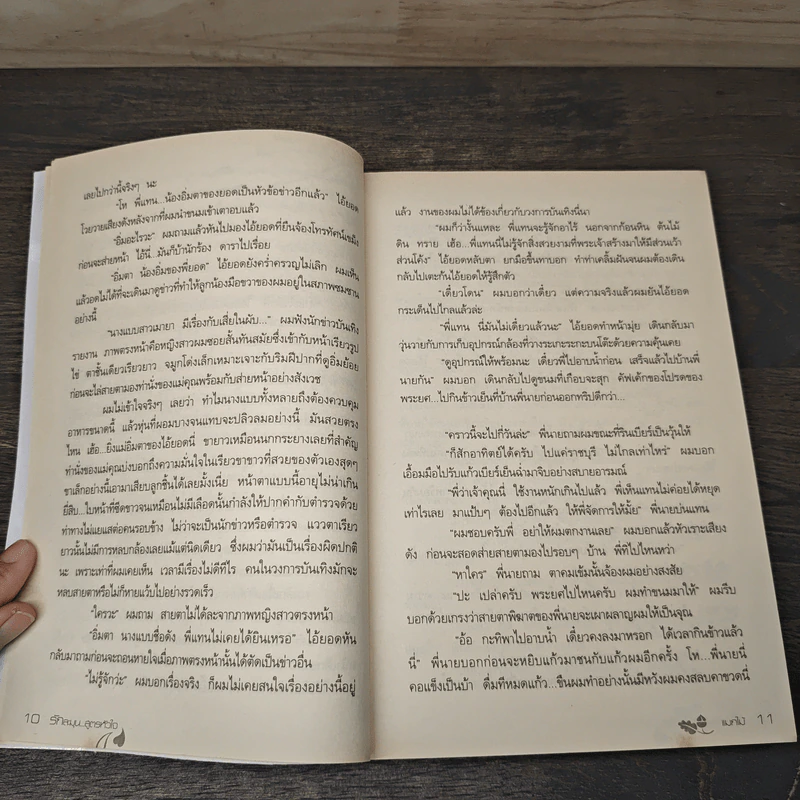 เลยไปกว่านี้จริงๆ นะ
"โห พี่แทน...น้องอิ่มตาของยอดเป็นหัวข้อข่าวอีกแล้ว" ไอ้ยอด
โวยวายเสียงดังหลังจากที่ผมนำขนมเข้าเตาอบแล้ว
"อิ่มอะไรวะ" ผมถามแล้วหันไปมองไอ้ยอดที่ยืนจ้องโทรทัศน์เขม็ง
ก่อนจะส่ายหน้า ไอ้นี่...มันก็บ้านักร้อง ดาราไปเรื่อย
"อิ่มตา น้องอิ่มของพี่ยอด" ไอ้ยอดยังคร่ำครวญไม่เลิก ผมเห็น
แล้วอดไม่ได้ที่จะเดินมาดูข่าวที่ทำให้ลูกน้องมือขวาของผมอยู่ในสภาพซมซาน
อย่างนี้
"นางแบบสาวเมายา มีเรื่องกับเสี่ยในผับ..." ผมฟังนักข่าวบันเทิง
รายงาน ภาพตรงหน้าคือหญิงสาวผมซอยสั้นทันสมัยซึ่งเข้ากับหน้าเรียวรูป
ไข่ ตาชั้นเดียวเรียวยาว จมูกโด่งเล็กเหมาะเจาะกับริมฝีปากที่ดูอิ่มย้อย
ก่อนจะไล่สายตามองท่านั่งของแม่คุณพร้อมกับส่ายหน้าอย่างสังเวช
ผมไม่เข้าใจจริงๆ เลยว่า ทำไมนางแบบทั้งหลายถึงต้องควบคุม
อาหารขนาดนี้ แล้วหุ่นที่ผอมบางจนแทบจะปลิวลมอย่างนี้ มันสวยตรง
ไหน เฮ้อ...ยิ่งแม่อิ่มตาของไอ้ยอดนี่ ขายาวเหมือนนกกระยางเลยที่สำคัญ
ท่านั่งของแม่คุณบ่งบอกถึงความมั่นใจในเรียวขาขาวที่สวยของตัวเองสุดๆ
ขาเล็กอย่างนี้เอามาเสียบลูกชิ้นได้เลยมั้งเนี่ย หน้าตาแบบนี้อายุไม่น่าเกิน
ยี่สิบ...ใบหน้าที่ซีดขาวจนเหมือนไม่มีเลือดนั้นกำลังให้ปากคำกับตำรวจด้วย
ท่าทางไม่แยแสต่อคนรอบข้าง ไม่ว่าจะเป็นนักข่าวหรือตำรวจ แววตาเรียว
ยาวนั้นไม่มีการหลบกล้องเลยแม้แต่นิดเดียว ซึ่งผมว่ามันเป็นเรื่องผิดปกติ
นะ เพราะเท่าที่ผมเคยเห็น เวลามีเรื่องไม่ดีทีไร คนในวงการบันเทิงมักจะ
หลบสายตาหรือไม่ก็หายแว้บไปอย่างรวดเร็ว
"ใครวะ" ผมถาม สายตาไม่ได้ละจากภาพหญิงสาวตรงหน้า
"อิ่มตา นางแบบชื่อดัง พี่แทนไม่เคยได้ยินเหรอ" ไอ้ยอดหัน
กลับมาถามก่อนจะถอนหายใจเมื่อภาพตรงหน้านั้นได้ตัดเป็นข่าวอื่น
"ไม่รู้จักว่ะ" ผมบอกเรื่องจริง ก็ผมไม่เคยสนใจเรื่องอย่างนี้อยู่
10 รักละมุน...สูตรหัวใจ
แล้ว งานของผมไม่ได้ข้องเกี่ยวกับวงการบันเทิงนี่นา
"ผมก็ว่างั้นแหละ พี่แทนจะรู้จักอาไร้ นอกจากก้อนหิน ต้นไม้
ดิน ทราย เฮ้อ...พี่แทนนี่ไม่รู้จักสิ่งสวยงามที่พระเจ้าสร้างมาให้มีส่วนเว้า
ส่วนโค้ง" ไอ้ยอดหลับตา ยกมือขึ้นทาบอก ทำท่าเคลิ้มฝันจนผมต้องเดิน
กลับไปเตะก้นไอ้ยอดให้รู้สึกตัว
"เดี๋ยวโดน" ผมบอกว่าเดี๋ยว แต่ความจริงแล้วผมยันไอ้ยอด
กระเด็นไปไกลแล้วล่ะ
"พี่แทน นี่มันไม่เดี๋ยวแล้วนะ" ไอ้ยอดทำหน้ามุ่ย เดินกลับมา
วุ่นวายกับการเก็บอุปกรณ์กล้องที่วางระเกะระกะบนโต๊ะด้วยความคุ้นเคย
"ดูอุปกรณ์ให้พร้อมนะ เดี๋ยวพี่ไปอาบน้ำก่อน เสร็จแล้วไปบ้านพี่
นายกัน" ผมบอก เดินกลับไปดูขนมที่เกือบจะสุก คัพเค้กของโปรดของ
พระยศ...ไปกินข้าวเย็นที่บ้านพี่นายก่อนออกทริปดีกว่า...
"คราวนี้จะไปกี่วันล่ะ" พี่นายถามผมขณะที่รินเบียร์เป็นวุ้นให้
"ก็สักอาทิตย์ได้ครับ ไปแค่ราชบุรี ไม่ไกลเท่าไหร่" ผมบอก
เอื้อมมือไปรับแก้วเบียร์เย็นฉ่ำมาจิบอย่างสบายอารมณ์
"พี่ว่าเจ้าคุณนี่ ใช้งานหนักเกินไปแล้ว พี่เห็นแทนไม่ค่อยได้หยุด
เท่าไรเลย มาแป๊บๆ ต้องไปอีกแล้ว ให้พี่จัดการให้มั้ย" พี่นายบ่นแทน
"ผมชอบครับพี่ อย่าให้ผมตกงานเลย" ผมบอกแล้วหัวเราะเสียง
ดัง ก่อนจะสอดส่ายสายตามองไปรอบๆ บ้าน พี่ทิไปไหนหว่า
"หาใคร" พี่นายถาม ตาคมเข้มนั้นจ้องผมอย่างสงสัย
"ปะ เปล่าครับ พระยศไปไหนครับ ผมทำขนมมาให้" ผมรีบ
บอกด้วยเกรงว่าสายตาพิฆาตของพี่นายจะเผาผลาญผมให้เป็นจุณ
"อ้อ กะทิพาไปอาบน้ำ เดี๋ยวคงลงมาหรอก ได้เวลากินข้าวแล้ว
นี่" พี่นายบอกก่อนจะหยิบแก้วมาชนกับแก้วผมอีกครั้ง โห...พี่นายนี่
คอแข็งเป็นบ้า ดื่มทีหมดแก้ว...ขืนผมทำอย่างนั้นมีหวังผมคงสลบคาขวดนี่
แมกไม้ 11